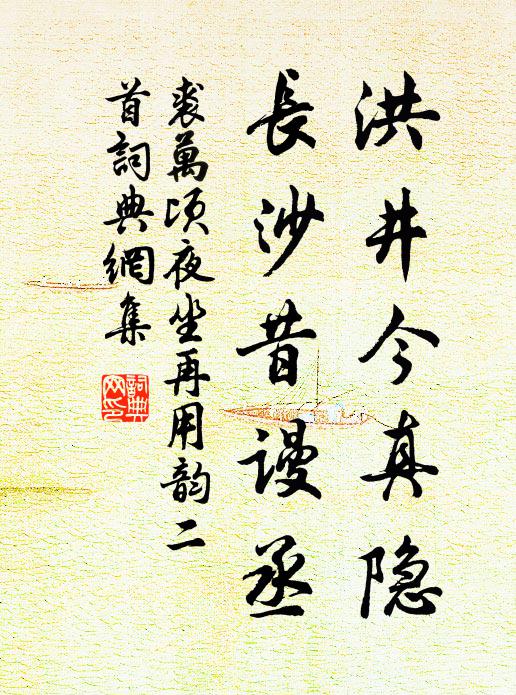 洪井今真隐
長沙昔谩丞
裘萬顷夜坐再用韵二
首詞典網集
詞典
网印